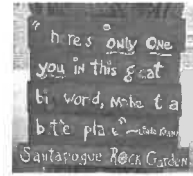 "here's only one
you in this great
big world, make it a
better place"
Sautapogue Rock Garden